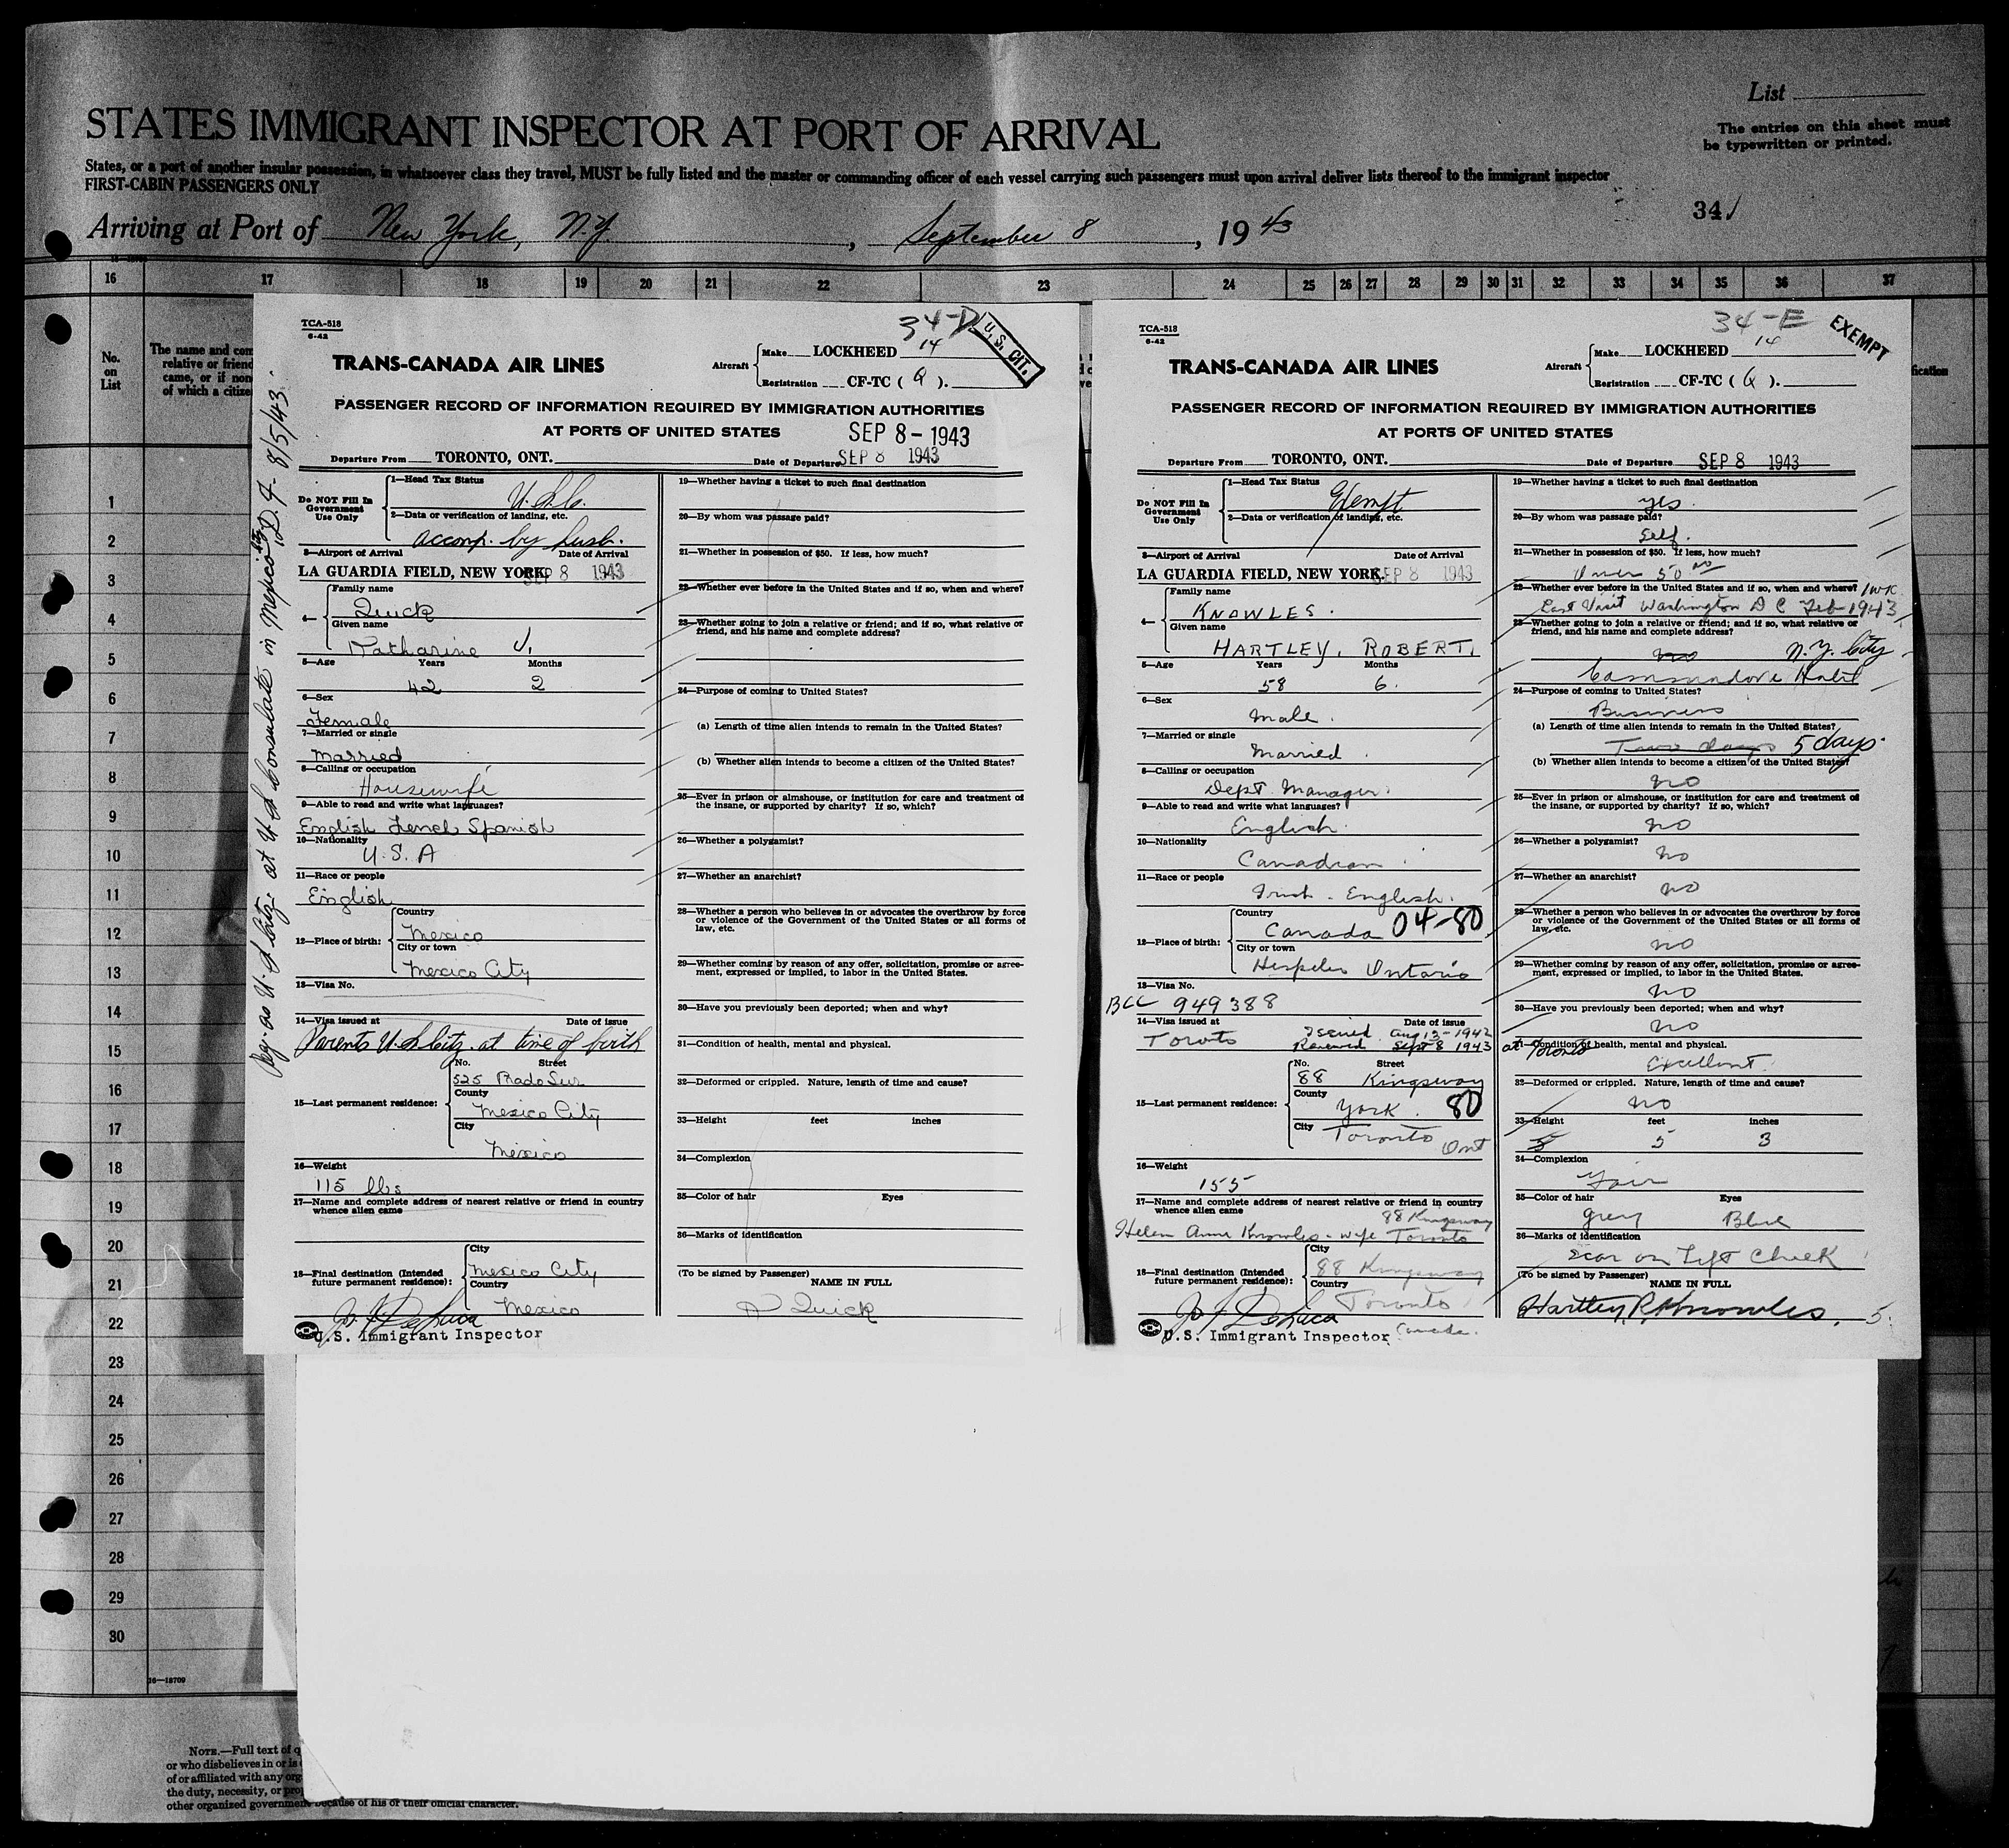 List
The entries on this sheet must
be typewritten or printed.
STATES IMMIGRANT INSPECTOR AT PORT OF ARRIVAL
States, or a port of another insular possession, in whatsoever class they travel, MUST be fully listed and the master or commanding officer of each vessel carrying such passengers must upon arrival deliver lists thereof to the immigrant inspector
FIRST-CABIN PASSENGERS ONLY
34
Arriving at Port of New York, N.Y., September 8, 1943
16 17 18 19 20 21 22 23 24 25 26 27 28 29 30 31 32 33 34 35 36 37
No.
on
List
The name and com
relative or friend
came, or if non
of which a citize
1
2
3
4
5
6
7
8
9
10
11
12
13
14
15
16
17
18
19
20
21
22
23
24
25
26
27
28
29
30
16—18700
NOTE.—Full text of q
or who disbelieves in or is
of or affiliated with any org
the duty, necessity, or prop
other organized government because of his or their official character.
TCA-518
6-42
34-D
U.S. CIT.
TRANS-CANADA AIR LINES
Aircraft
Make LOCKHEED 14
Registration CF-TC ( Q ).
PASSENGER RECORD OF INFORMATION REQUIRED BY IMMIGRATION AUTHORITIES
AT PORTS OF UNITED STATES
SEP 8 - 1943
Departure From TORONTO, ONT.
Date of Departure SEP 8 1943
Do NOT Fill In
Government
Use Only
1—Head Tax Status
U.S.C.
2—Data or verification of landing, etc.
accomp. by husb.
3—Airport of Arrival Date of Arrival
LA GUARDIA FIELD, NEW YORK. SEP 8 1943
4—
Family name
Quick
Given name
Katharine J.
5—Age Years Months
42 2
6—Sex
Female
7—Married or single
Married
8—Calling or occupation
Housewife
9—Able to read and write what languages?
English French Spanish
10—Nationality
U.S.A
11—Race or people
English
12—Place of birth:
Country
Mexico
City or town
Mexico City
13—Visa No.
14—Visa issued at Date of issue
Parents U.S. Citz. at time of birth
15—Last permanent residence:
No. Street
525 Prado Sur
County
Mexico City
City
Mexico
16—Weight
115 lbs
17—Name and complete address of nearest relative or friend in country
whence alien came
18—Final destination (Intended
future permanent residence):
City
Mexico City
Country
Mexico
U.S. Immigrant Inspector
19—Whether having a ticket to such final destination
20—By whom was passage paid?
21—Whether in possession of $50. If less, how much?
22—Whether ever before in the United States and if so, when and where?
23—Whether going to join a relative or friend; and if so, what relative or
friend, and his name and complete address?
24—Purpose of coming to United States?
(a) Length of time alien intends to remain in the United States?
(b) Whether alien intends to become a citizen of the United States?
25—Ever in prison or almshouse, or institution for care and treatment of
the insane, or supported by charity? If so, which?
26—Whether a polygamist?
27—Whether an anarchist?
28—Whether a person who believes in or advocates the overthrow by force
or violence of the Government of the United States or all forms of
law, etc.
29—Whether coming by reason of any offer, solicitation, promise or agree-
ment, expressed or implied, to labor in the United States.
30—Have you previously been deported; when and why?
31—Condition of health, mental and physical.
32—Deformed or crippled. Nature, length of time and cause?
33—Height feet inches
34—Complexion
35—Color of hair Eyes
36—Marks of identification
(To be signed by Passenger)
NAME IN FULL
Quick
at U S Consulate in Mexico D.F. 8/5/43.
TCA-518
6-42
34-E
EXEMPT
TRANS-CANADA AIR LINES
Aircraft
Make LOCKHEED 14
Registration CF-TC ( Q ).
PASSENGER RECORD OF INFORMATION REQUIRED BY IMMIGRATION AUTHORITIES
AT PORTS OF UNITED STATES
Departure From TORONTO, ONT.
Date of Departure SEP 8 1943
Do NOT Fill In
Government
Use Only
1—Head Tax Status
Exempt
2—Data or verification of landing, etc.
3—Airport of Arrival Date of Arrival
LA GUARDIA FIELD, NEW YORK. SEP 8 1943
4—
Family name
KNOWLES.
Given name
HARTLEY, ROBERT.
5—Age Years Months
58 6.
6—Sex
Male.
7—Married or single
Married.
8—Calling or occupation
Dept. Manager.
9—Able to read and write what languages?
English.
10—Nationality
Canadian
11—Race or people
Irish - English.
12—Place of birth:
Country
Canada 04-80
City or town
Hespeler Ontario
13—Visa No.
BCC 949388
14—Visa issued at Date of issue
Toronto Issued Aug 13-1942
Renewed Sept 8 1943 at Toronto
15—Last permanent residence:
No. Street
88 Kingsway
County
York. 80
City
Toronto Ont
16—Weight
155
17—Name and complete address of nearest relative or friend in country
whence alien came
88 Kingsway
Helen Anna Knowles - wife Toronto
18—Final destination (Intended
future permanent residence):
City
88 Kingsway
Country
Toronto
U.S. Immigrant Inspector Canada.
19—Whether having a ticket to such final destination
yes.
20—By whom was passage paid?
Self.
21—Whether in possession of $50. If less, how much?
Over 50 00
22—Whether ever before in the United States and if so, when and where? 1 wk.
Last Visit Washington D C Feb 1943
23—Whether going to join a relative or friend; and if so, what relative or
friend, and his name and complete address?
no N.Y. City
Commodore Hotel
24—Purpose of coming to United States?
Business
(a) Length of time alien intends to remain in the United States?
Two days 5 days.
(b) Whether alien intends to become a citizen of the United States?
no
25—Ever in prison or almshouse, or institution for care and treatment of
the insane, or supported by charity? If so, which?
no
26—Whether a polygamist?
no
27—Whether an anarchist?
no
28—Whether a person who believes in or advocates the overthrow by force
or violence of the Government of the United States or all forms of
law, etc.
no
29—Whether coming by reason of any offer, solicitation, promise or agree-
ment, expressed or implied, to labor in the United States.
no
30—Have you previously been deported; when and why?
no
31—Condition of health, mental and physical.
Excellent.
32—Deformed or crippled. Nature, length of time and cause?
no
33—Height feet inches
5 5 3
34—Complexion
Fair
35—Color of hair Eyes
grey Blue
36—Marks of identification
scar on Left Cheek
(To be signed by Passenger)
NAME IN FULL
Hartley R. Knowles. 5.